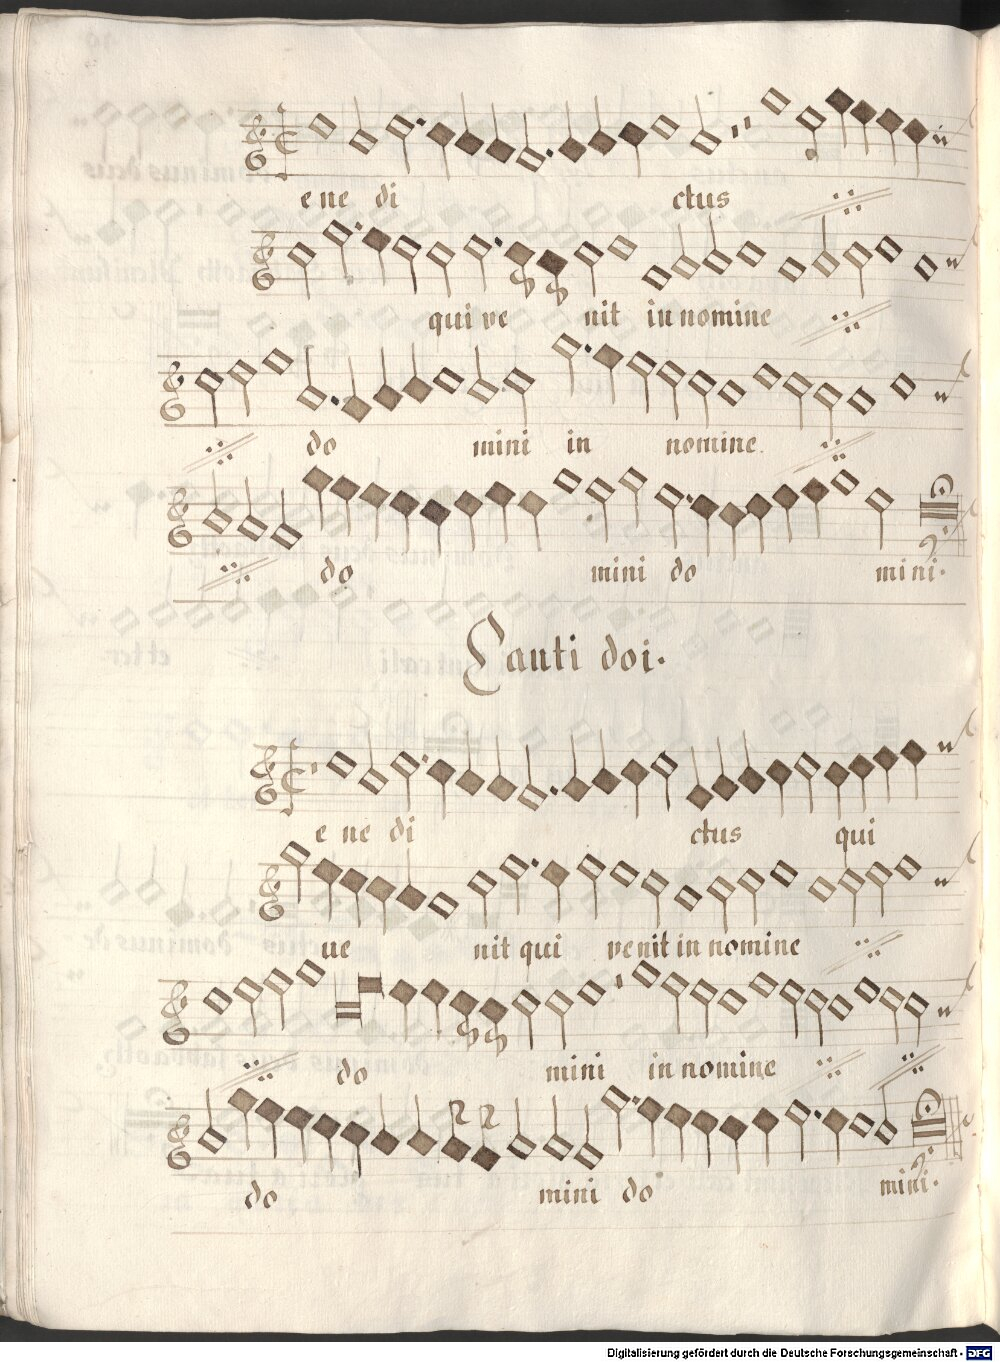 ene di ctus
qui ve nit in nomine
do mini in nomine
do mini do mini.
Canti doi.
e ne di ctus qui
ue nit qui venit in nomine
do mini in nomine
do mini do mini.
Digitalisierung gefördert durch die Deutsche Forschungsgemeinschaft - DFG